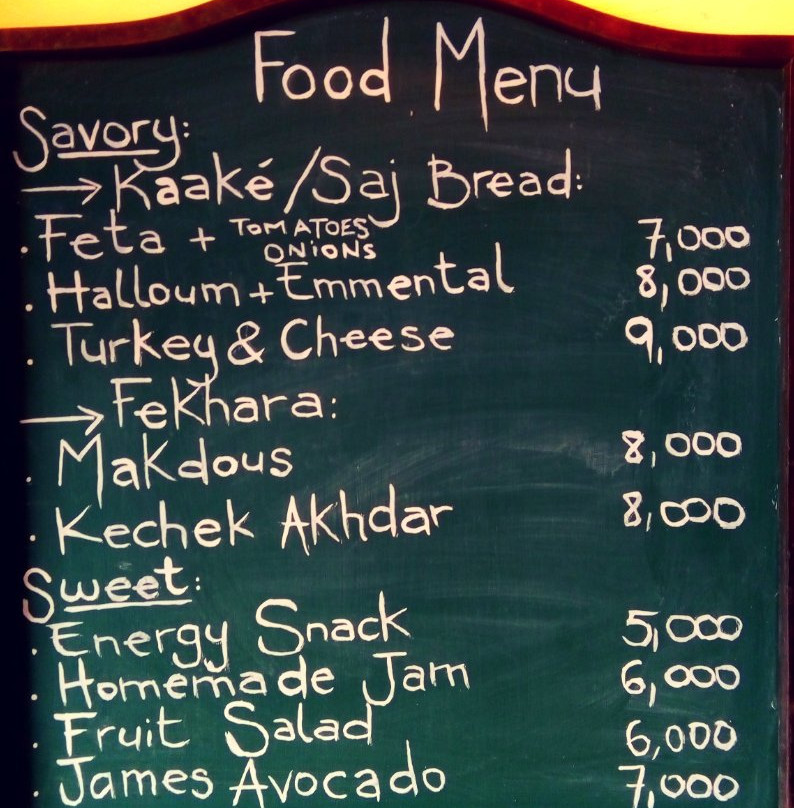 Food Menu
Savory:
→ Kaaké/Saj Bread:
. Feta + TOMATOES ONIONS 7,000
. Halloum + Emmental 8,000
. Turkey & Cheese 9,000
→ Fekhara:
. Makdous 8,000
. Kechek Akhdar 8,000
Sweet:
. Energy Snack 5,000
. Homemade Jam 6,000
. Fruit Salad 6,000
. James Avocado 7,000